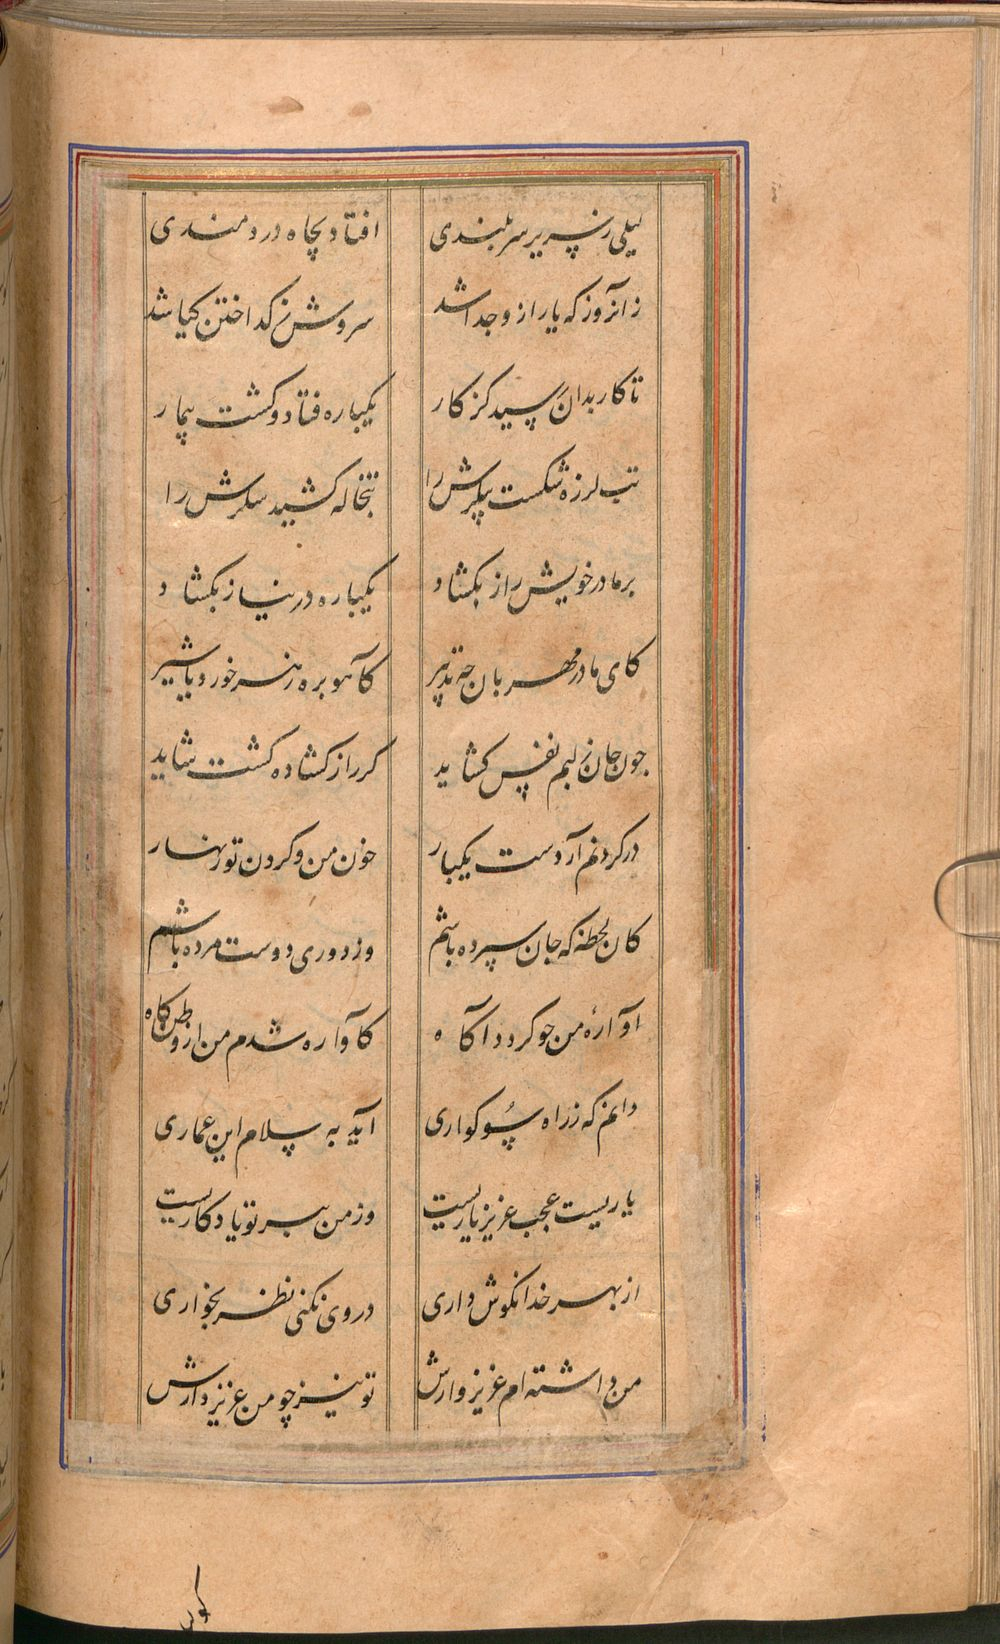 لیلی ز سریر سربلندی افتاد بچاه دردمندی
زانروز که یار ازو جدا شد سروش ز گداختن گیا شد
تا کار بدان رسید کز کار یکباره فتاد و گشت بیمار
تب لرزه شکست پیکرش را تبخاله گشید شکرش را
بر مادر خویش راز بگشاد یکباره در نیاز بگشاد
کای مادر مهربان چه تدبیر کآهو بره زهر خورد با شیر
جون جان ز لبم نفس گشاید گر راز گشاده گشت شاید
در گردنم آر دست یکبار خون من و گردن تو زنهار
کان لحظه که جان سپرده باشم وز دوری دوست مرده باشم
آوارهٔ من جو گردد آگاه کآواره شدم من از وطن گاه
دانم که ز راه سوگواری آید به سلام این عماری
یاریست عجب عزیز یاریست وز من ببر تو یادگاریست
از بهر خدا نکوش داری در وی نکنی نظر بخواری
من داشته‌ام عزیزوارش تو نیز چو من عزیز دارش